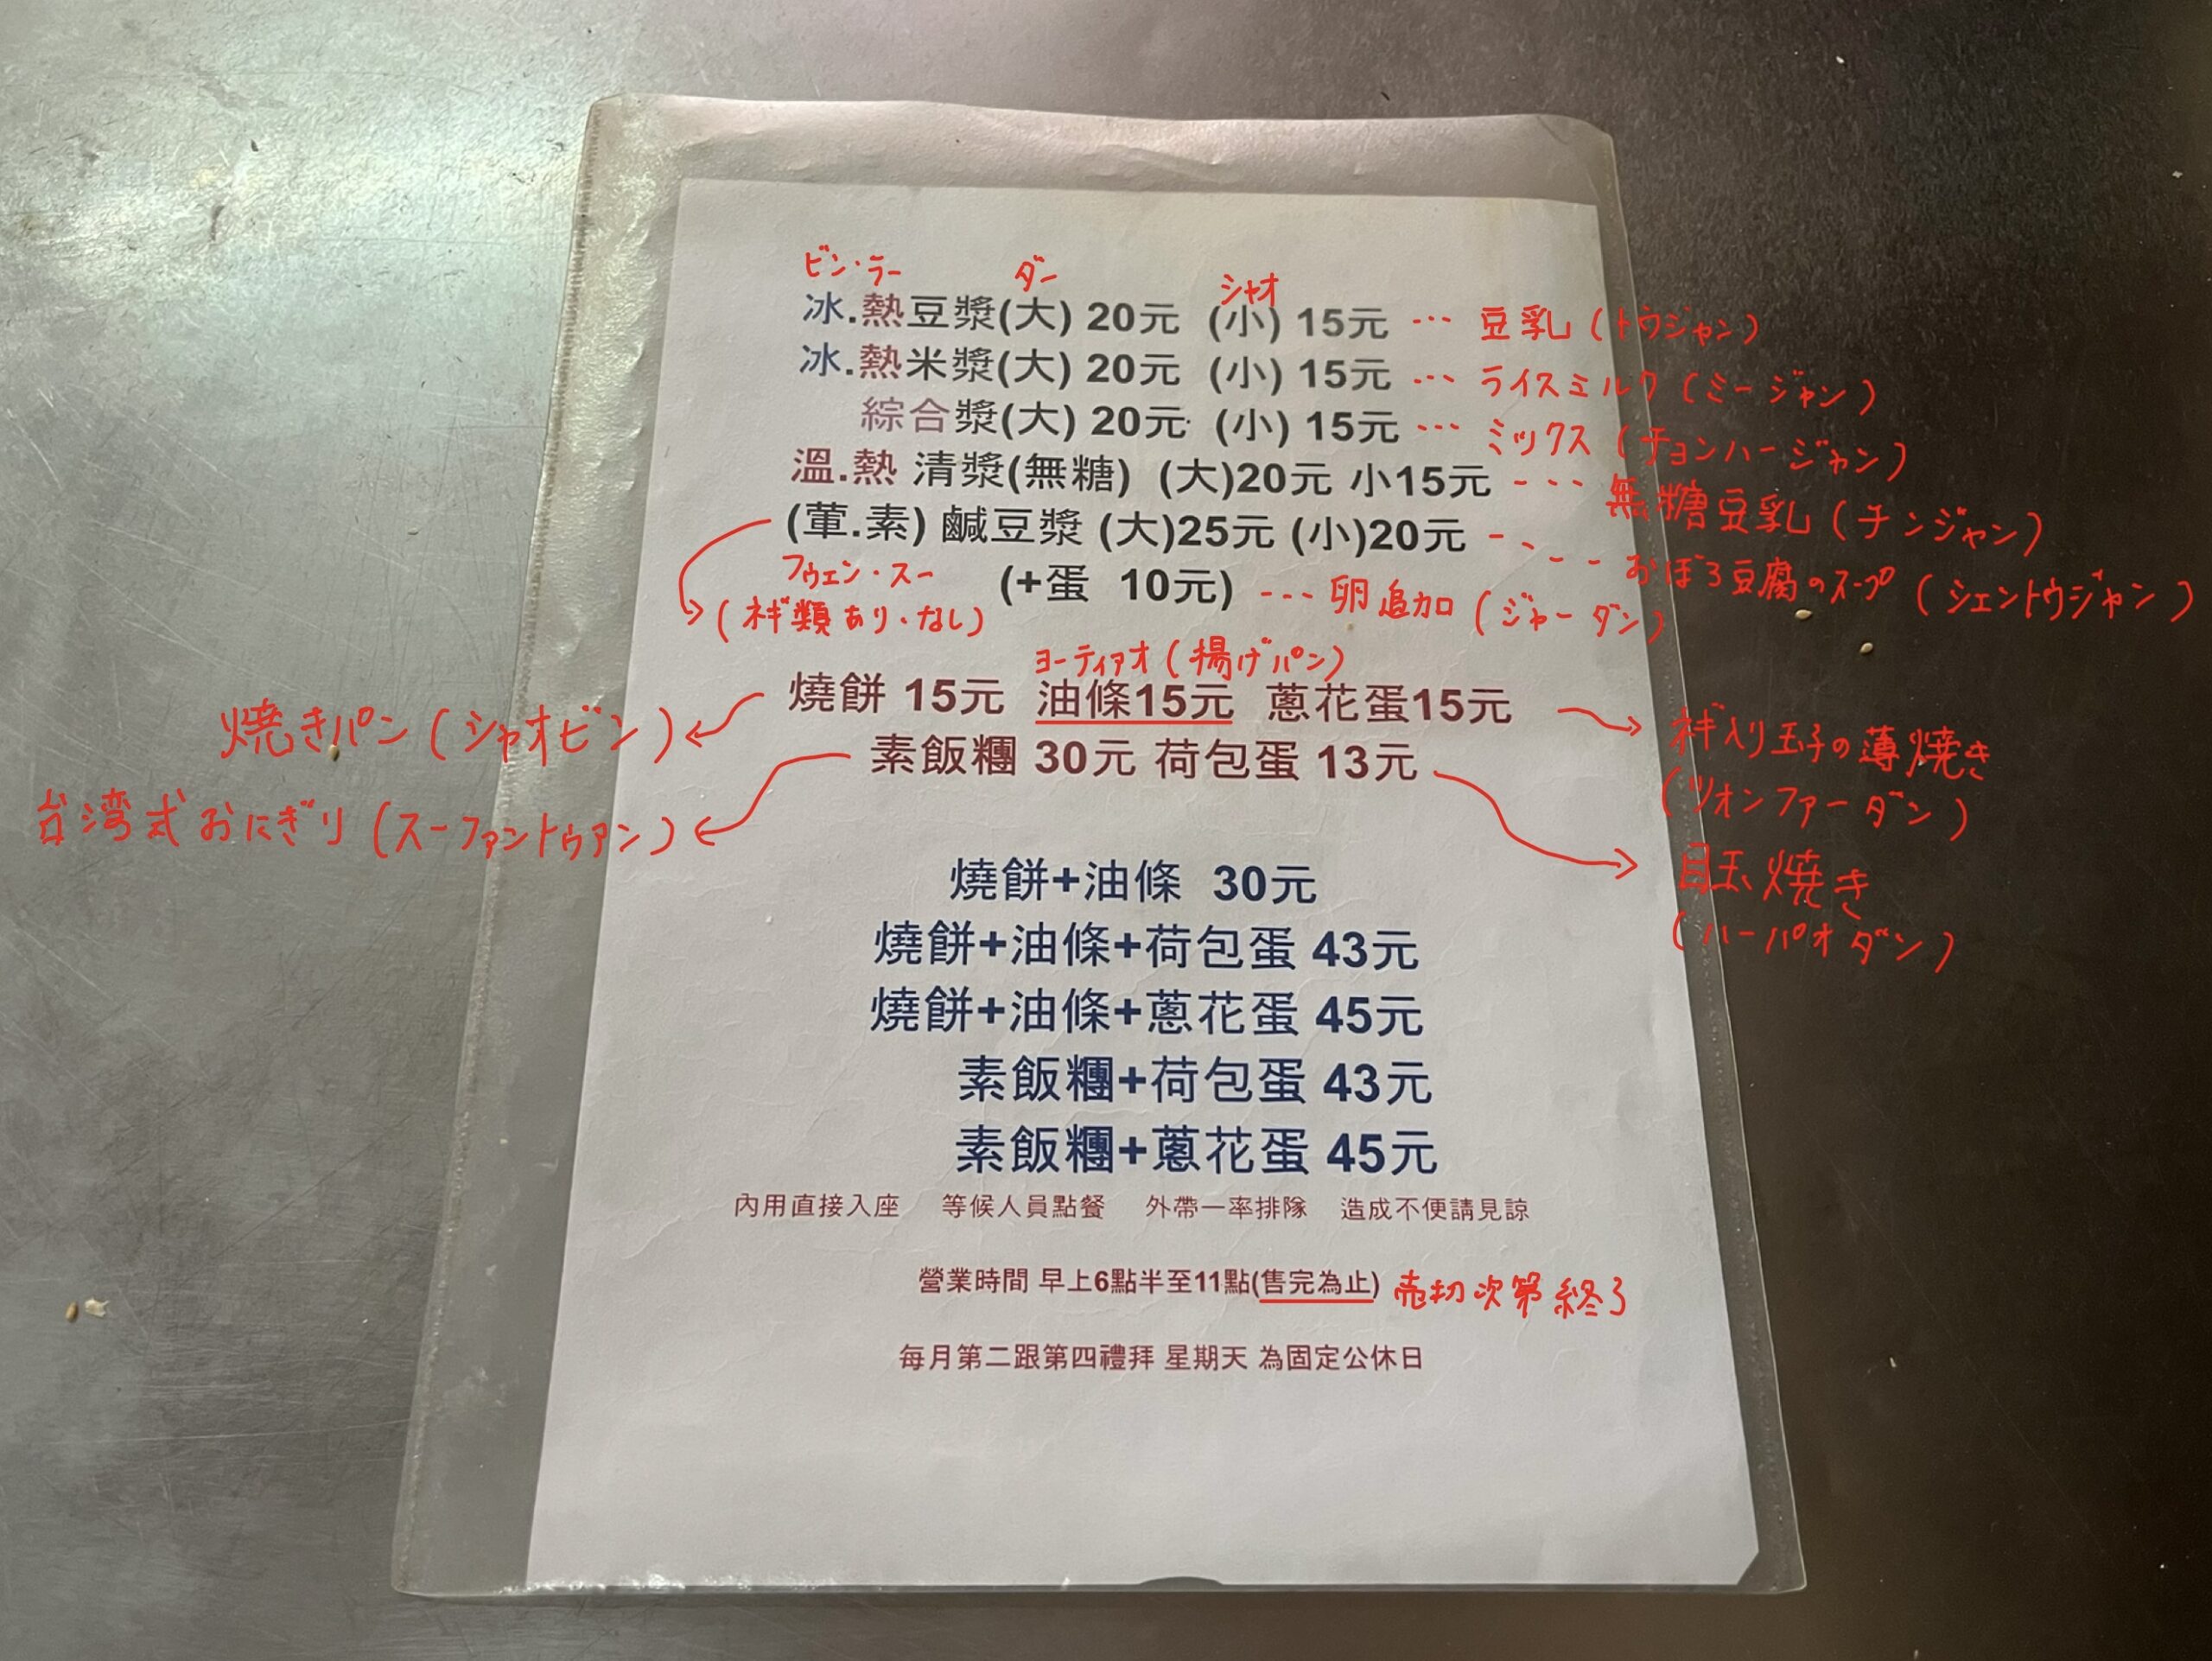 ビン・ラー ダー シャオ
冰.熱豆漿(大) 20元 (小) 15元 … 豆乳(トウジャン)
冰.熱米漿(大) 20元 (小) 15元 … ライスミルク(ミージャン)
綜合漿(大) 20元 (小) 15元 … ミックス(チョンハージャン)
溫.熱 清漿(無糖) (大)20元 小15元 --- 無糖豆乳(チンジャン)
(葷.素) 鹹豆漿 (大)25元 (小)20元 ----- おぼろ豆腐のスープ(シェントウジャン)
フゥエン・スー
(ネギ類あり・なし)
(+蛋 10元) --- 卵追加(ジャーダン)
ヨーティアオ(揚げパン)
燒餅 15元 油條15元 蔥花蛋15元
焼きパン(シャオビン)
ネギ入り玉子の薄焼き
(ツォンファーダン)
素飯糰 30元 荷包蛋 13元
台湾式おにぎり(スーファントゥアン)
目玉焼き
(ハーパオダン)
燒餅+油條 30元
燒餅+油條+荷包蛋 43元
燒餅+油條+蔥花蛋 45元
素飯糰+荷包蛋 43元
素飯糰+蔥花蛋 45元
內用直接入座 等候人員點餐 外帶一率排隊 造成不便請見諒
營業時間 早上6點半至11點(售完為止) 売切次第終了
每月第二跟第四禮拜 星期天 為固定公休日